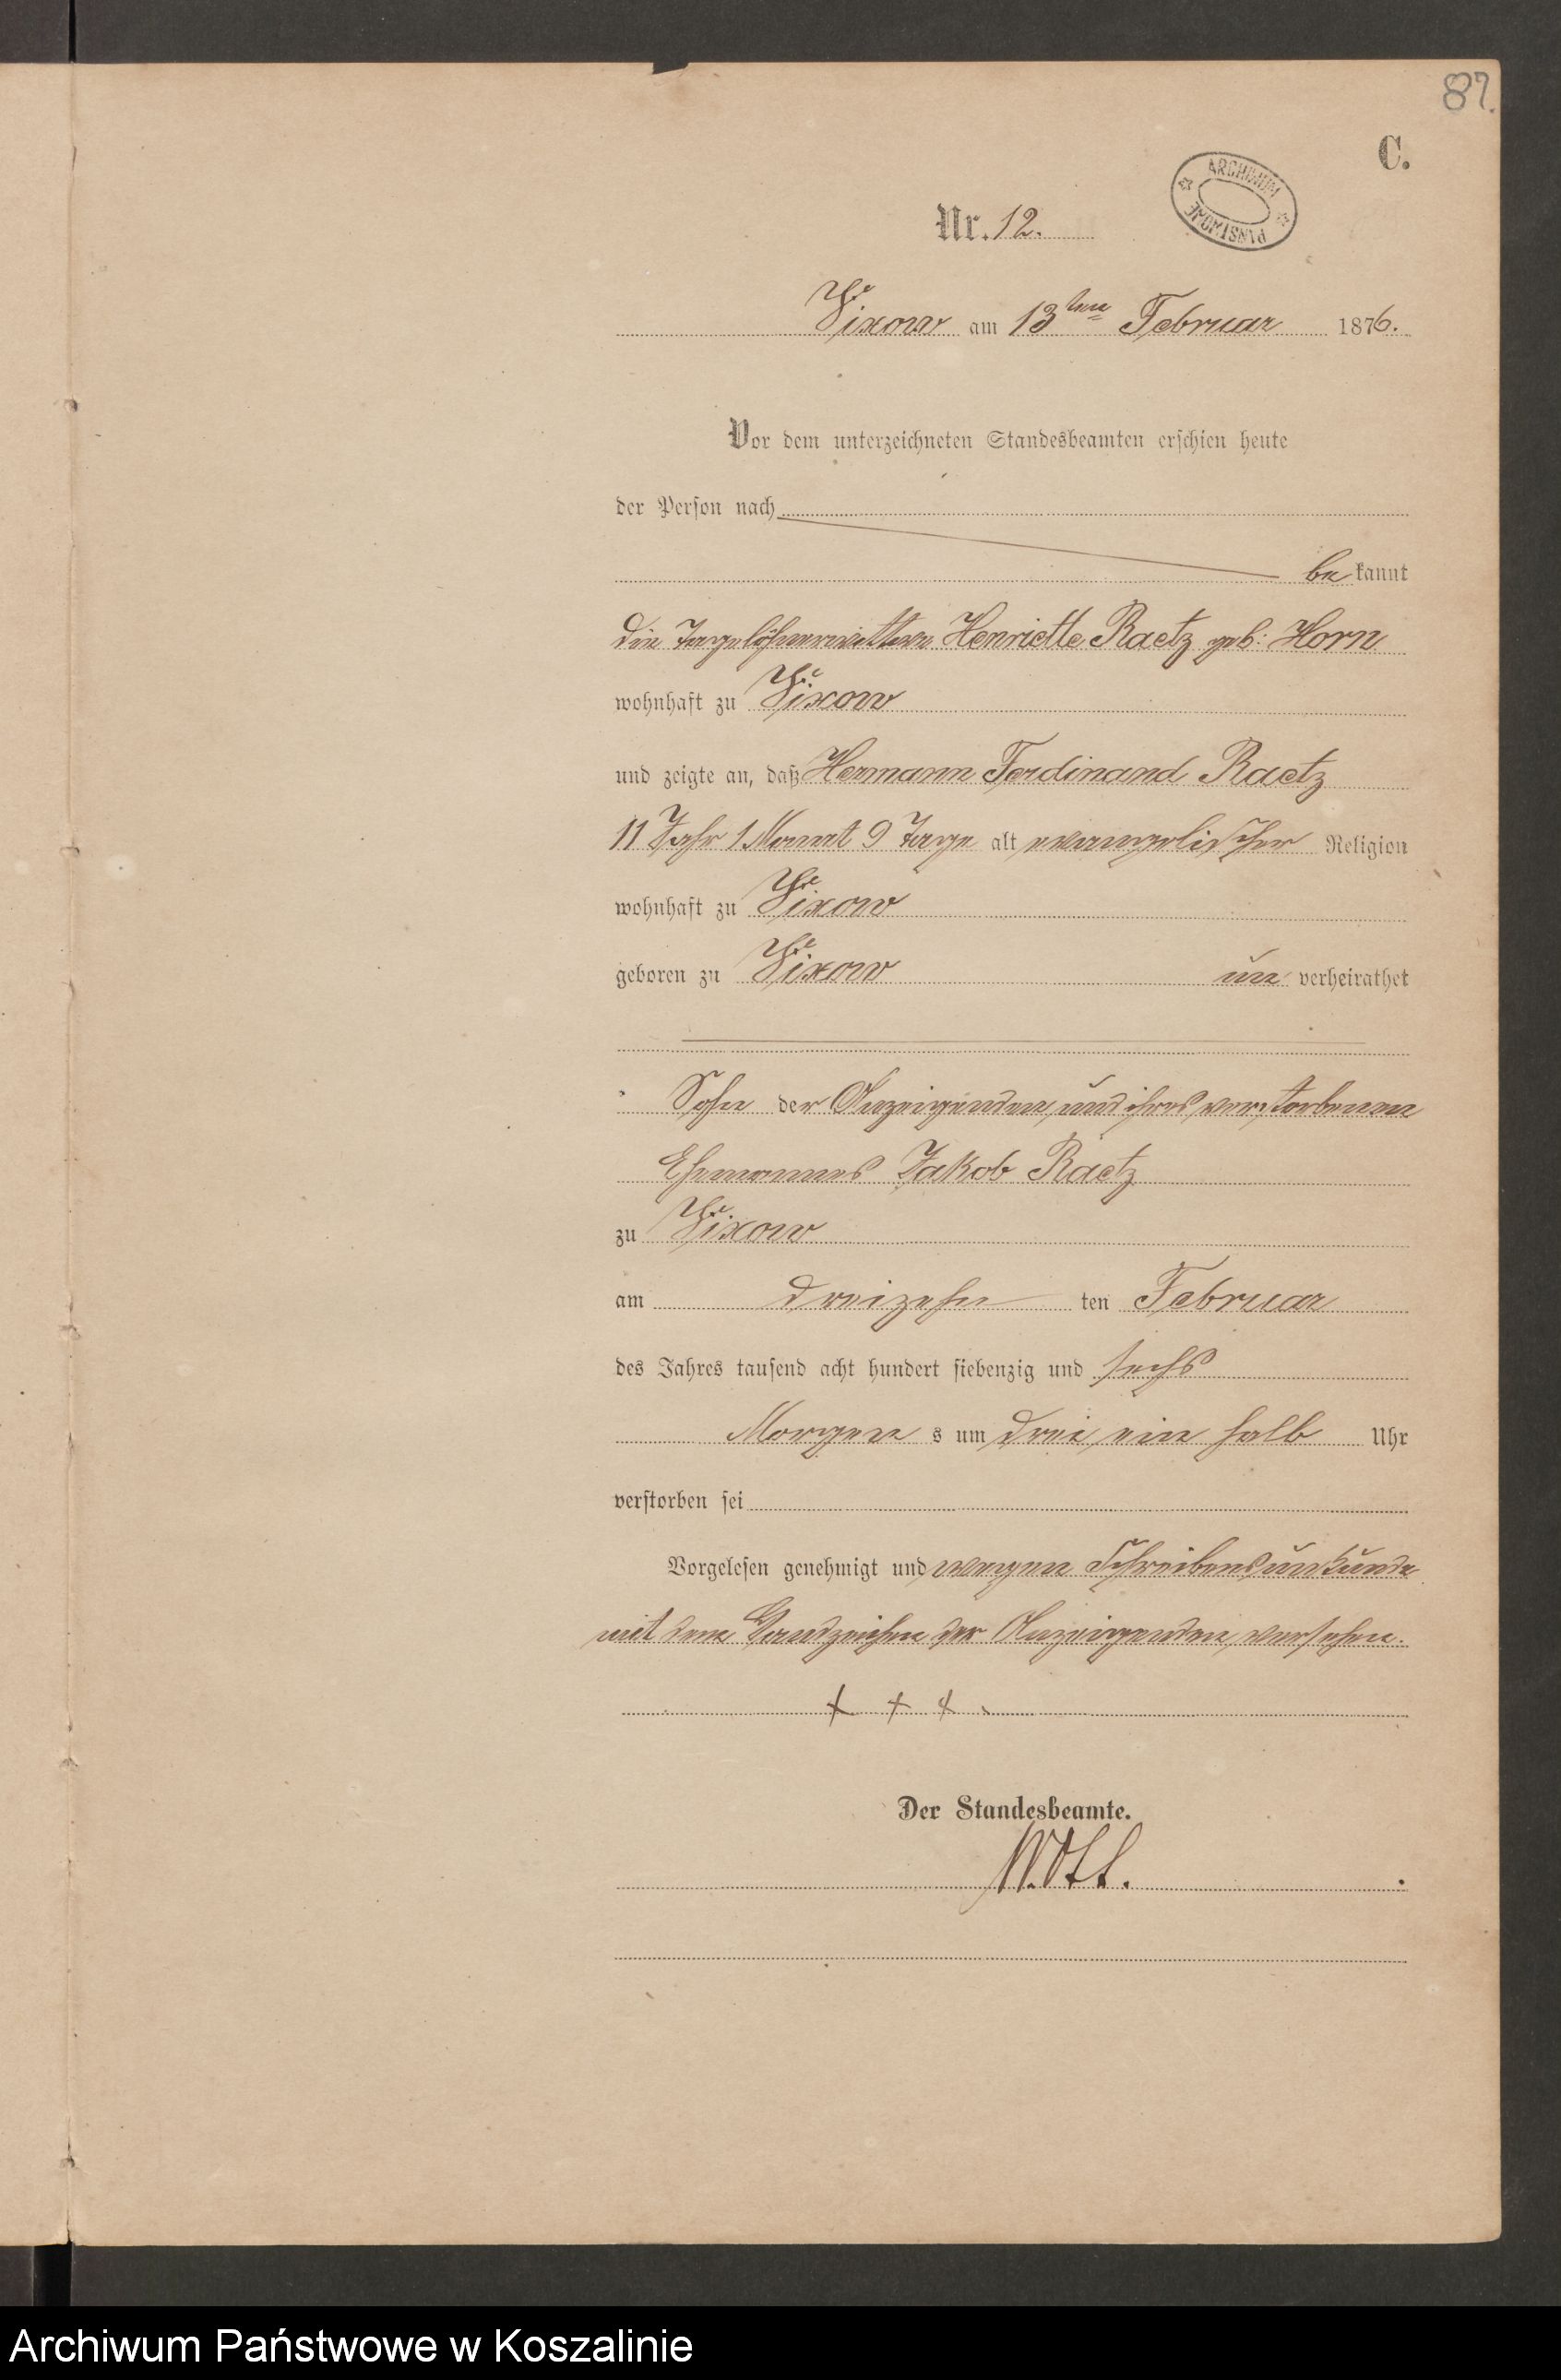 87.
C.
ARCHIWUM PAŃSTWOWE
Nr. 12.
Vixow am 13ten Februar 1876.
Vor dem unterzeichneten Standesbeamten erschien heute
der Person nach
be kannt
die Tagelöhnerwittwe Henriette Raetz geb: Horn
wohnhaft zu Vixow
und zeigte an, daß Hermann Ferdinand Raetz
11 Jahr 1 Monat 9 Tage alt evangelischer Religion
wohnhaft zu Vixow
geboren zu Vixow un verheirathet
Sohn der Anzeigenden und ihres verstorbenen
Ehemannes Jakob Raetz
zu Vixow
am dreizehn ten Februar
des Jahres tausend acht hundert siebenzig und sechs
Morgen s um drei ein halb Uhr
verstorben sei
Vorgelesen genehmigt und wegen Schreibensunkunde
mit dem Handzeichen der Anzeigenden versehen.
+ + +
Der Standesbeamte.
Archiwum Państwowe w Koszalinie